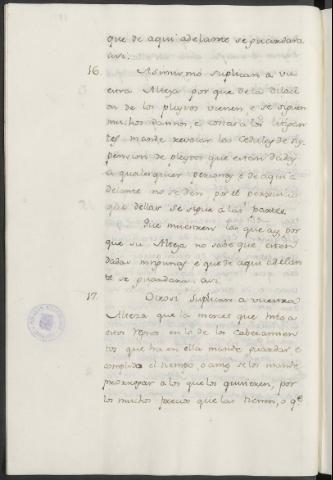 que de aqui adelante se guardara
asi.
16. Asimismo suplican a vu
estra Alteza por que de la dilaci
on de los pleytos vienen e se siguen
muchos dannos, e costas a los litigan
tes mande revocar las Cedulas de sus
pension de pleytos que estan dadas
a qualesquier personas e de aqui a
delante no se den por el perjuicio
que dellas se sigue a las partes.
Que muestren las que ay, por
que su Alteza no sabe que esten
dadas ningunas e que de aqui adelan
te se guardara asi.
17. Otrosi suplican a vuestra
Alteza que la merced que hizo a
estos Reynos en lo de los Cabezamien
tos que ha en ella mande guardar e
complido el tiempo, o antes se los mande
prorrogar a los que los quisieren, por
los muchos precios que las tienen, o qe